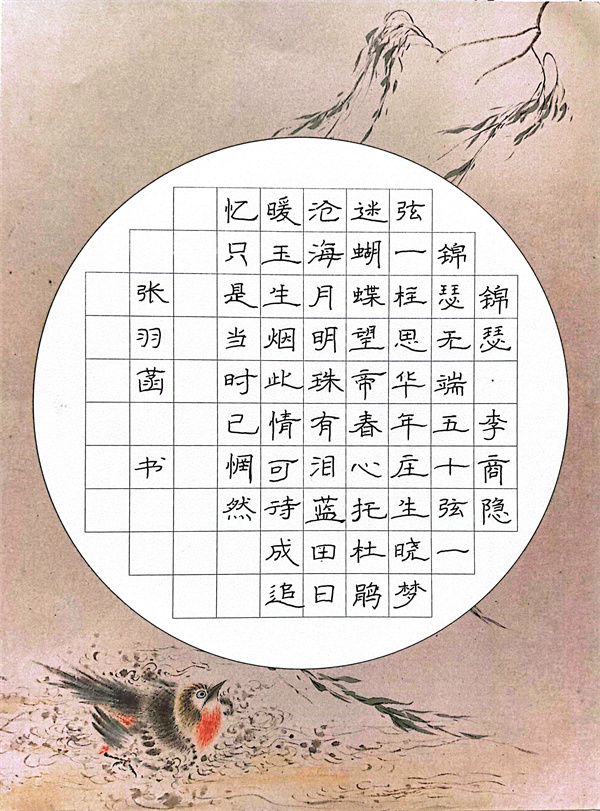 錦瑟·李商隐
錦瑟无端五十弦一
弦一柱思华年庄生晓梦
迷蝴蝶望帝春心托杜鹃
沧海月明珠有泪蓝田日
暖玉生烟此情可待成追
忆只是当时已惘然
张羽菡 书